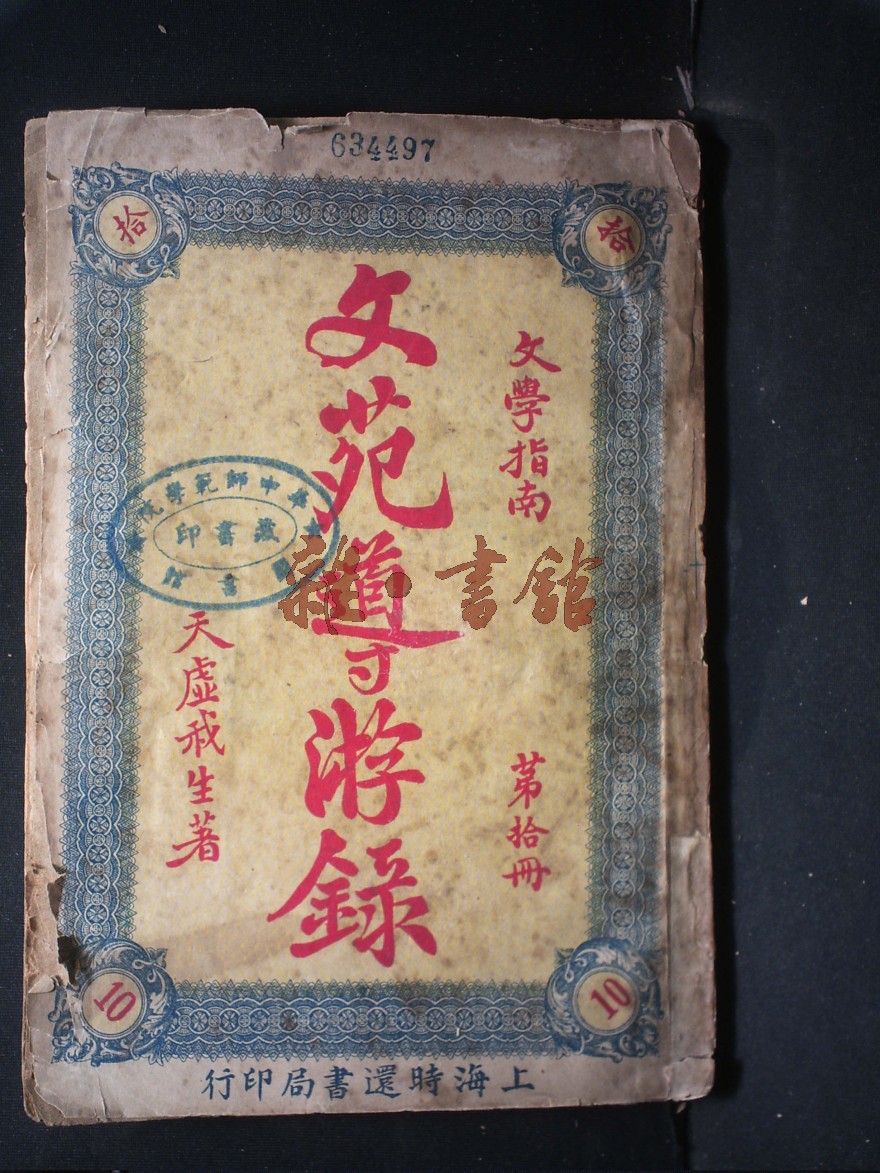 634497
拾
拾
文學指南
第拾冊
文苑導游錄
天虛我生著
華中師範學院
圖書館
藏書印
雜·書館
10
10
上海時還書局印行